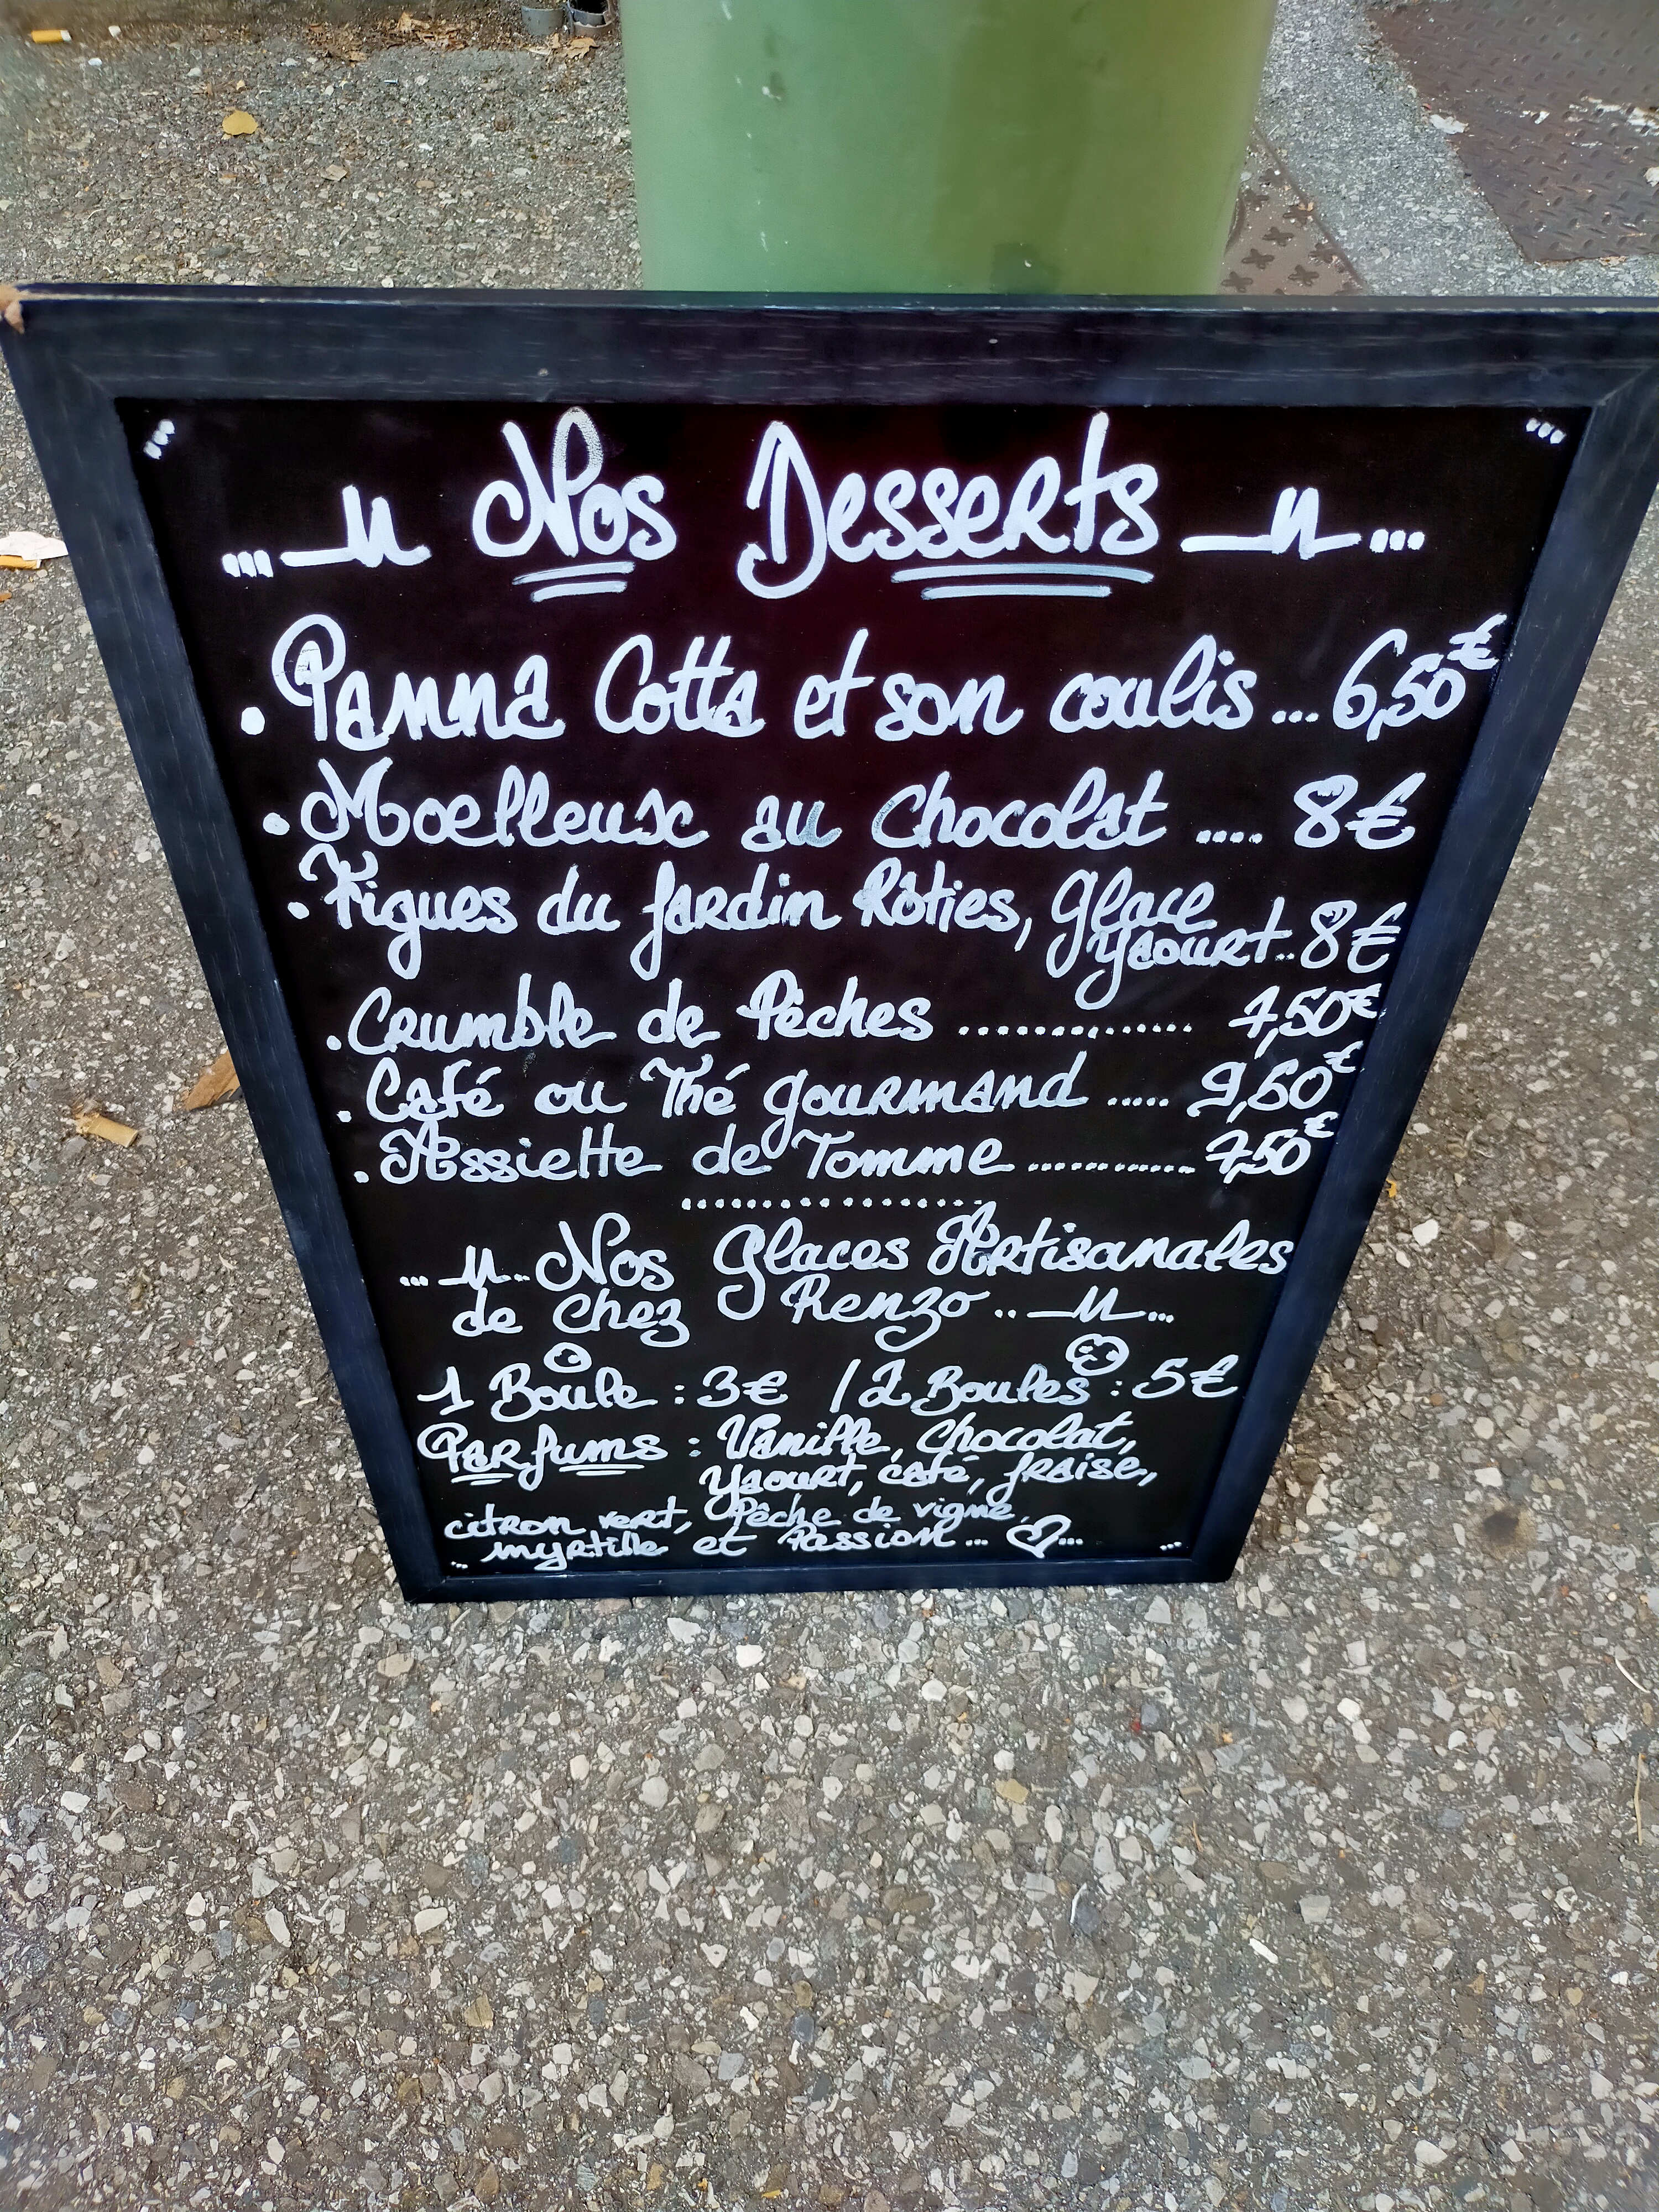 Nos Desserts
. Panna Cotta et son coulis ... 6,50€
. Moelleux au Chocolat .... 8€
. Figues du Jardin Rôties, glace
yaourt.. 8€
. Crumble de Pêches .............. 7,50€
. Café ou Thé gourmand ..... 9,50€
. Assiette de Tomme ............ 7,50€
..................
... Nos Glaces Artisanales
de chez Renzo .. ...
1 Boule : 3€ / 2 Boules : 5€
Parfums : Vanille, Chocolat,
Yaourt, café, fraise,
citron vert, Pêche de vigne,
... myrtille et Passion... ♡...